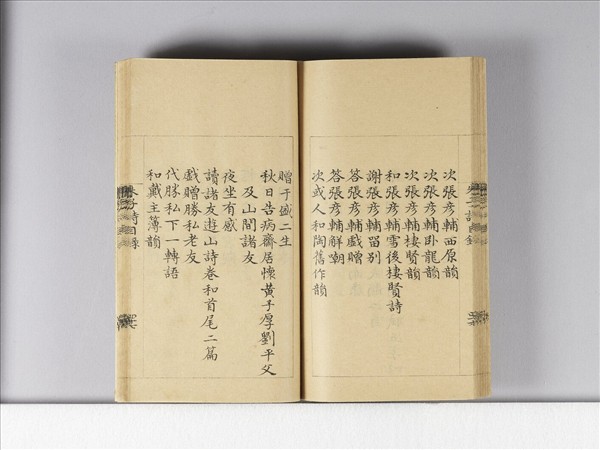 次張彥輔西原韻
次張彥輔臥龍韻
次張彥輔棲賢韻
和張彥輔雪後棲賢詩
謝張彥輔留別
答張彥輔戲贈
答張彥輔解嘲
次或人和陶舊作韻
贈于盛二生
秋日告病齋居懷黃子厚劉平父
及山間諸友
夜坐有感
讀諸友遊山詩卷和首尾二篇
戲贈勝私老友
代勝私下一轉語
和戴主簿韻